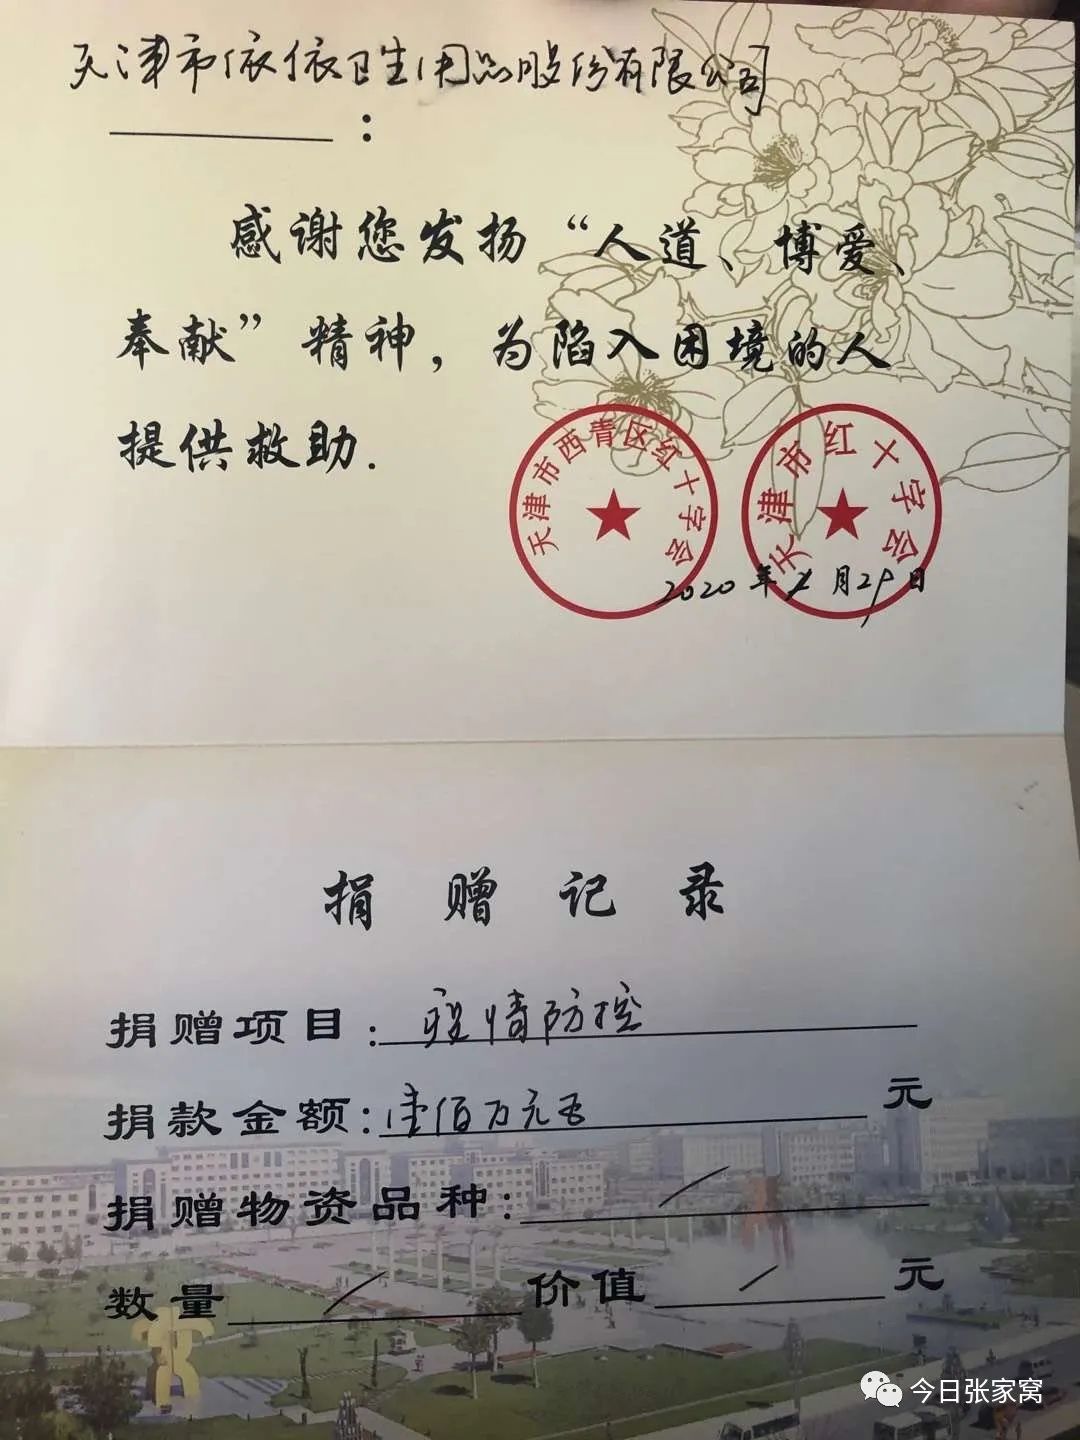 天津市依依卫生用品股份有限公司
：
感谢您发扬“人道、博爱、
奉献”精神，为陷入困境的人
提供救助.
天津市西青区红十字会
天津市红十字会
2020年 月29日
捐赠记录
捐赠项目：疫情防控
捐款金额：壹佰万元 元
捐赠物资品种：/
数量 / 价值 / 元
今日张家窝